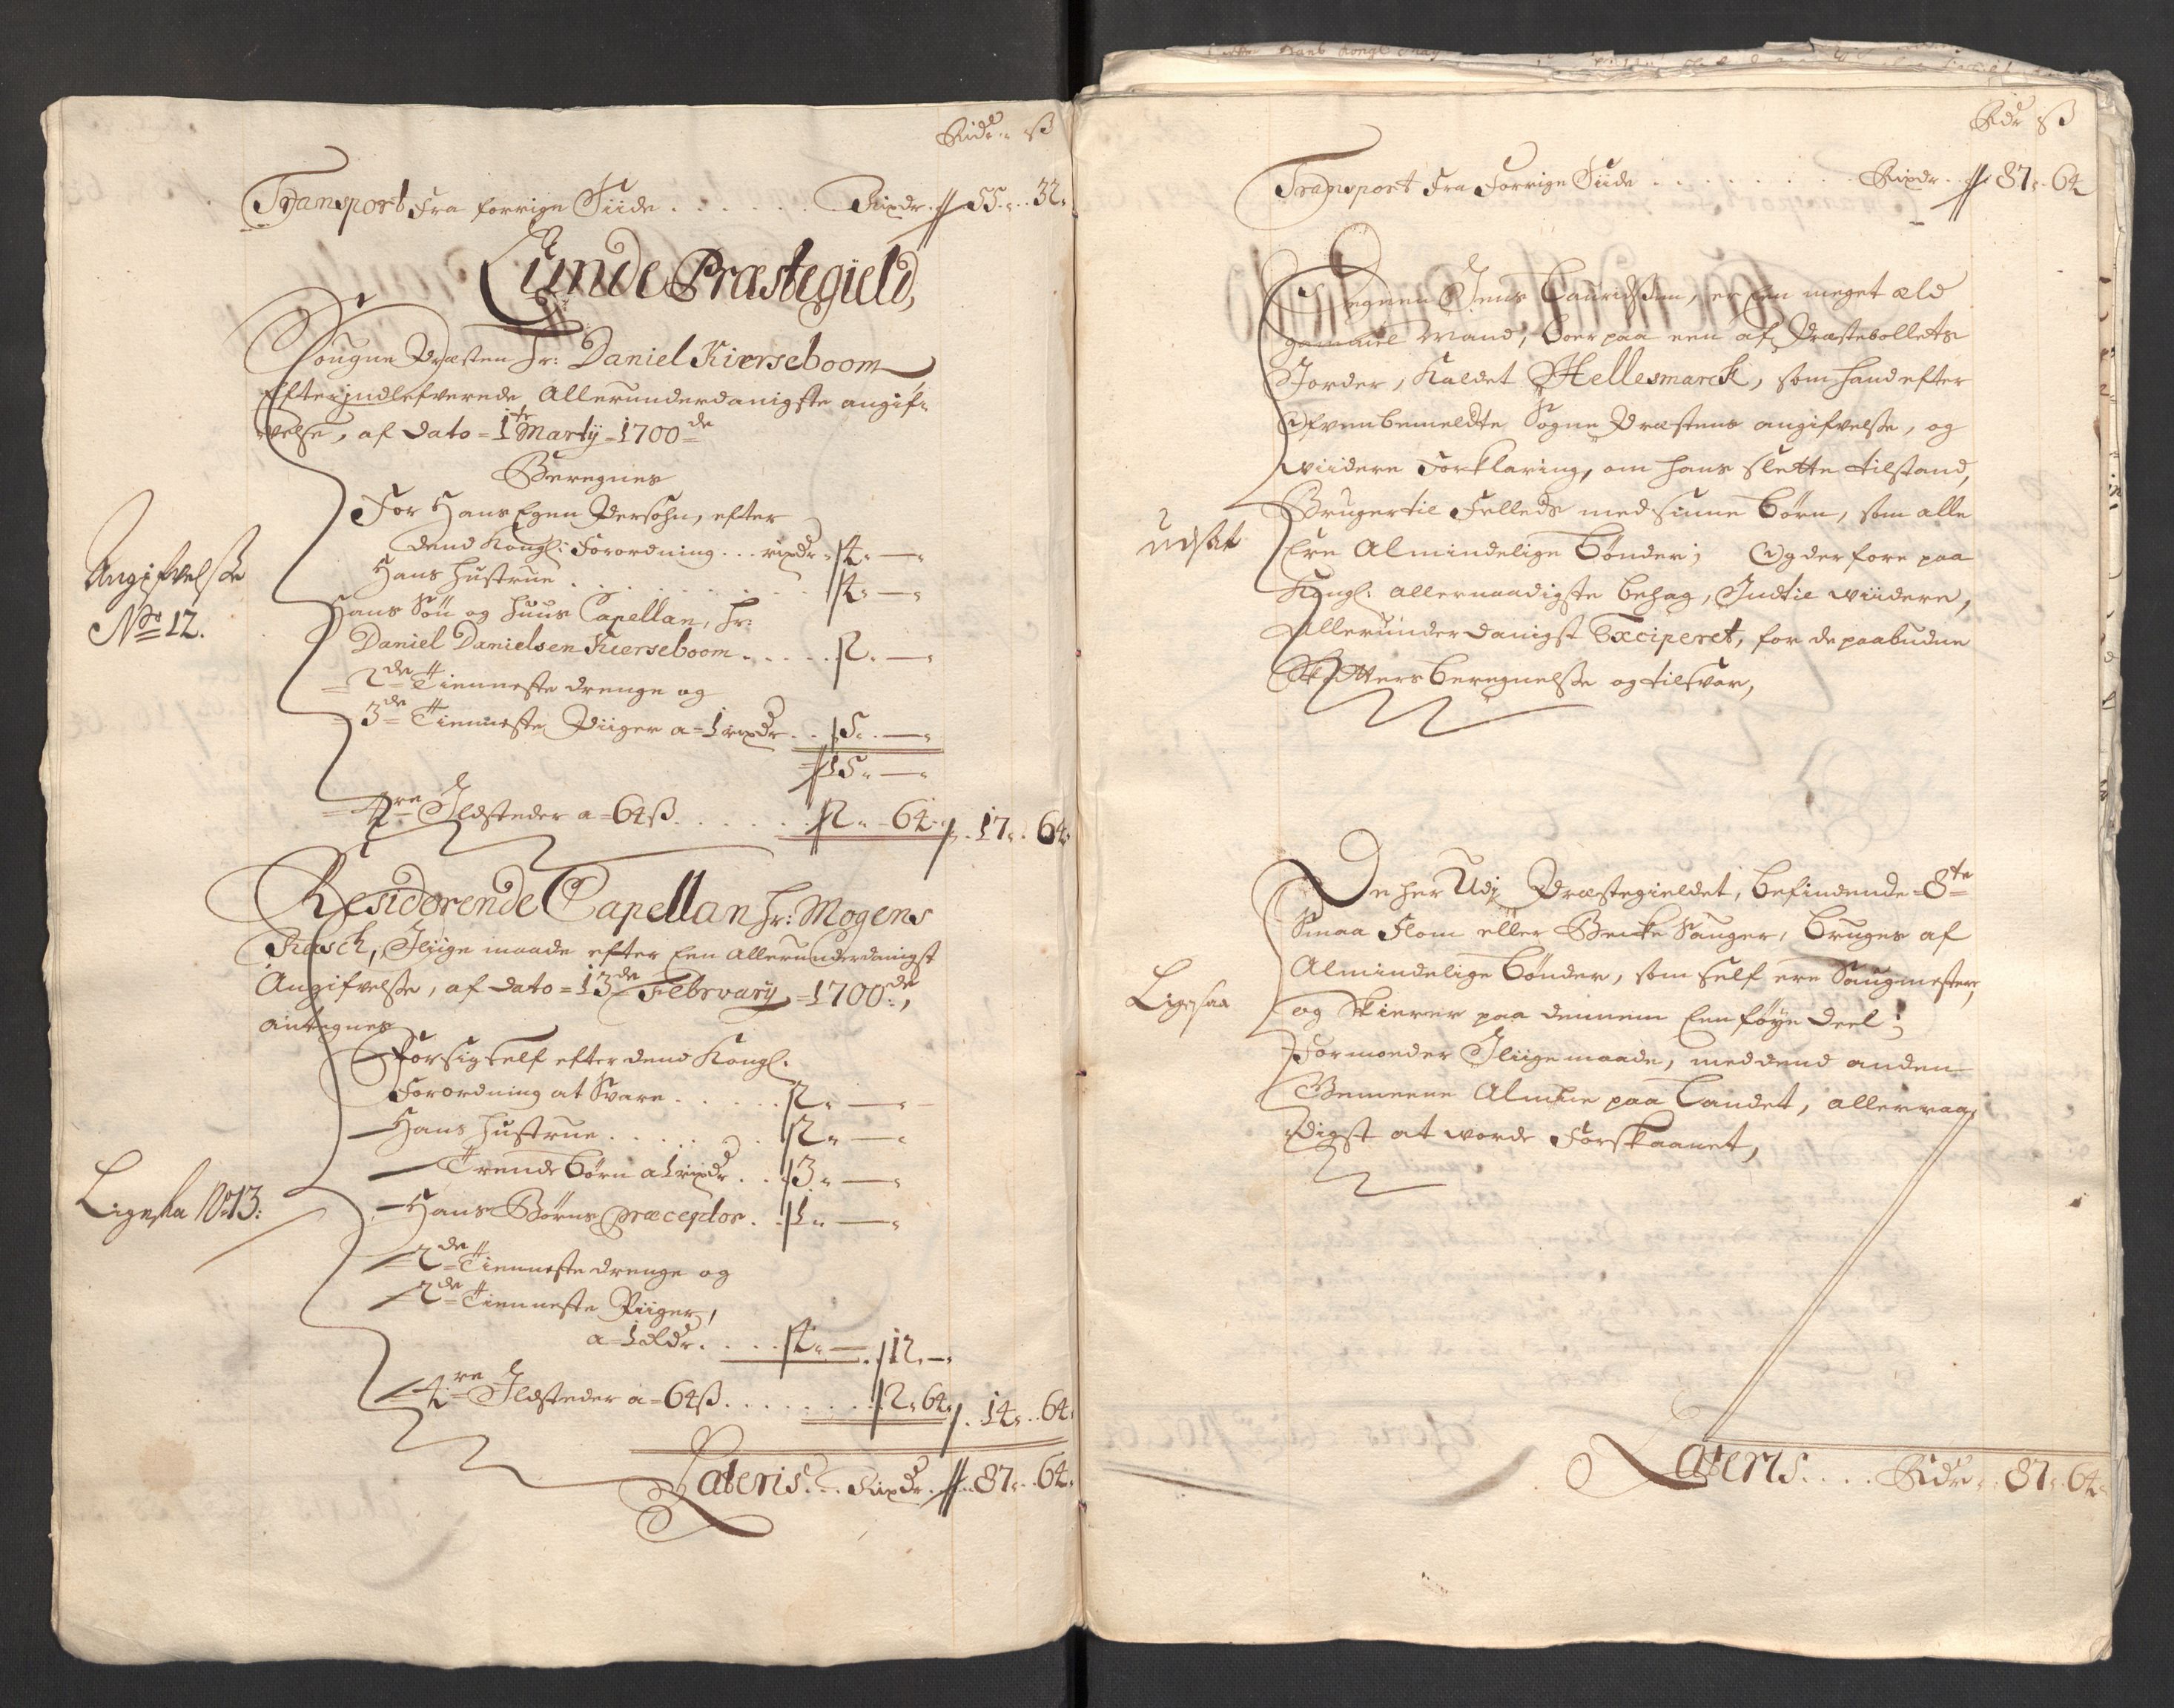 Ridr. ß
Transport Fra forrige Siide . . . . . . Rixdr. 55. 32.
Lunde Præstegield,
Sougne Præsten Hr: Daniel Kierseboom
Efter indlefverede Allerunderdanigste angif-
velse, af dato = 1te Martij = 1700de
Beregnes
For Hans Egen Persohn, efter
dend Kongl: Forordning . . . rixdr. 4. —
Hans Hustrue . . . . . . . . 4. —
Hans Søn og Huus Capellan, Hr:
Daniel Danielsen Kierseboom . . . . . 2. —
= 2de Tienneste drenge og
= 3de Tienneste Piiger a = 1 rixdr. . . 5. —
15. —
= 4re Ildsteder a = 64 ß . . . . . . 2. 64. 17. 64.
Angifvelse
No 12.
Residerende Capellan Hr: Mogens
Rasch, Jliige maade efter Een Allerunderdanigst
Angifvelse, af dato = 13de February = 1700de,
antegnes
For sig self efter dend Kongl.
Forordning at Svare . . . . . 2. —
Hans Hustrue . . . . . . 2. —
Trende Børn a 1 rixdr. . . 3. —
Hans Børns Præceptor . . 1. —
2de Tienneste drenge og
2de Tienneste Piiger,
a = 1 Rdr. . . . . 4. — 12. —
4re Ildsteder a = 64 ß . . . . . . . 2. 64. 14. 64.
Ligesaa No 13:
Lateris . . . Rixdr. 87. 64.
Rdr ß
Transport Fra Forrige Siide . . . . . . . Rixdr. 87. 64
Degnen Jens Lauridssen, er Een meget æld
gammel Mand, boer paa een af Præstebollets
Jorder, Kaldet Hellesmarck, som hand efter
Ofvenbemeldte Sogne Præstens angifvelse, og
viidere Forklaring, om hans slette tilstand,
Bruger til Felleds med sinne Børn, som alle
Ere Almindelige Bønder; Og derfore paa
Kongl: allernaadigste behag, Indtil viidere,
Allerunderdanigst Exciperet, for de paabudne
Skatters beregnelse og tilsvar,
Udsat
De her Udj Præstegieldet, befindende = 8te
Smaa Flom eller Becke Sauger, bruges af
Almindelige bønder, som self ere Saugmestere,
og Skierer paa dennem Een føye deel;
Formoeder Jliigemaade, med dend anden
Gemeene Almue paa Landet, allernaa-
digst at worde Forskaanet,
Ligesaa
Lateris . . . . Ridr. . 87. 64.